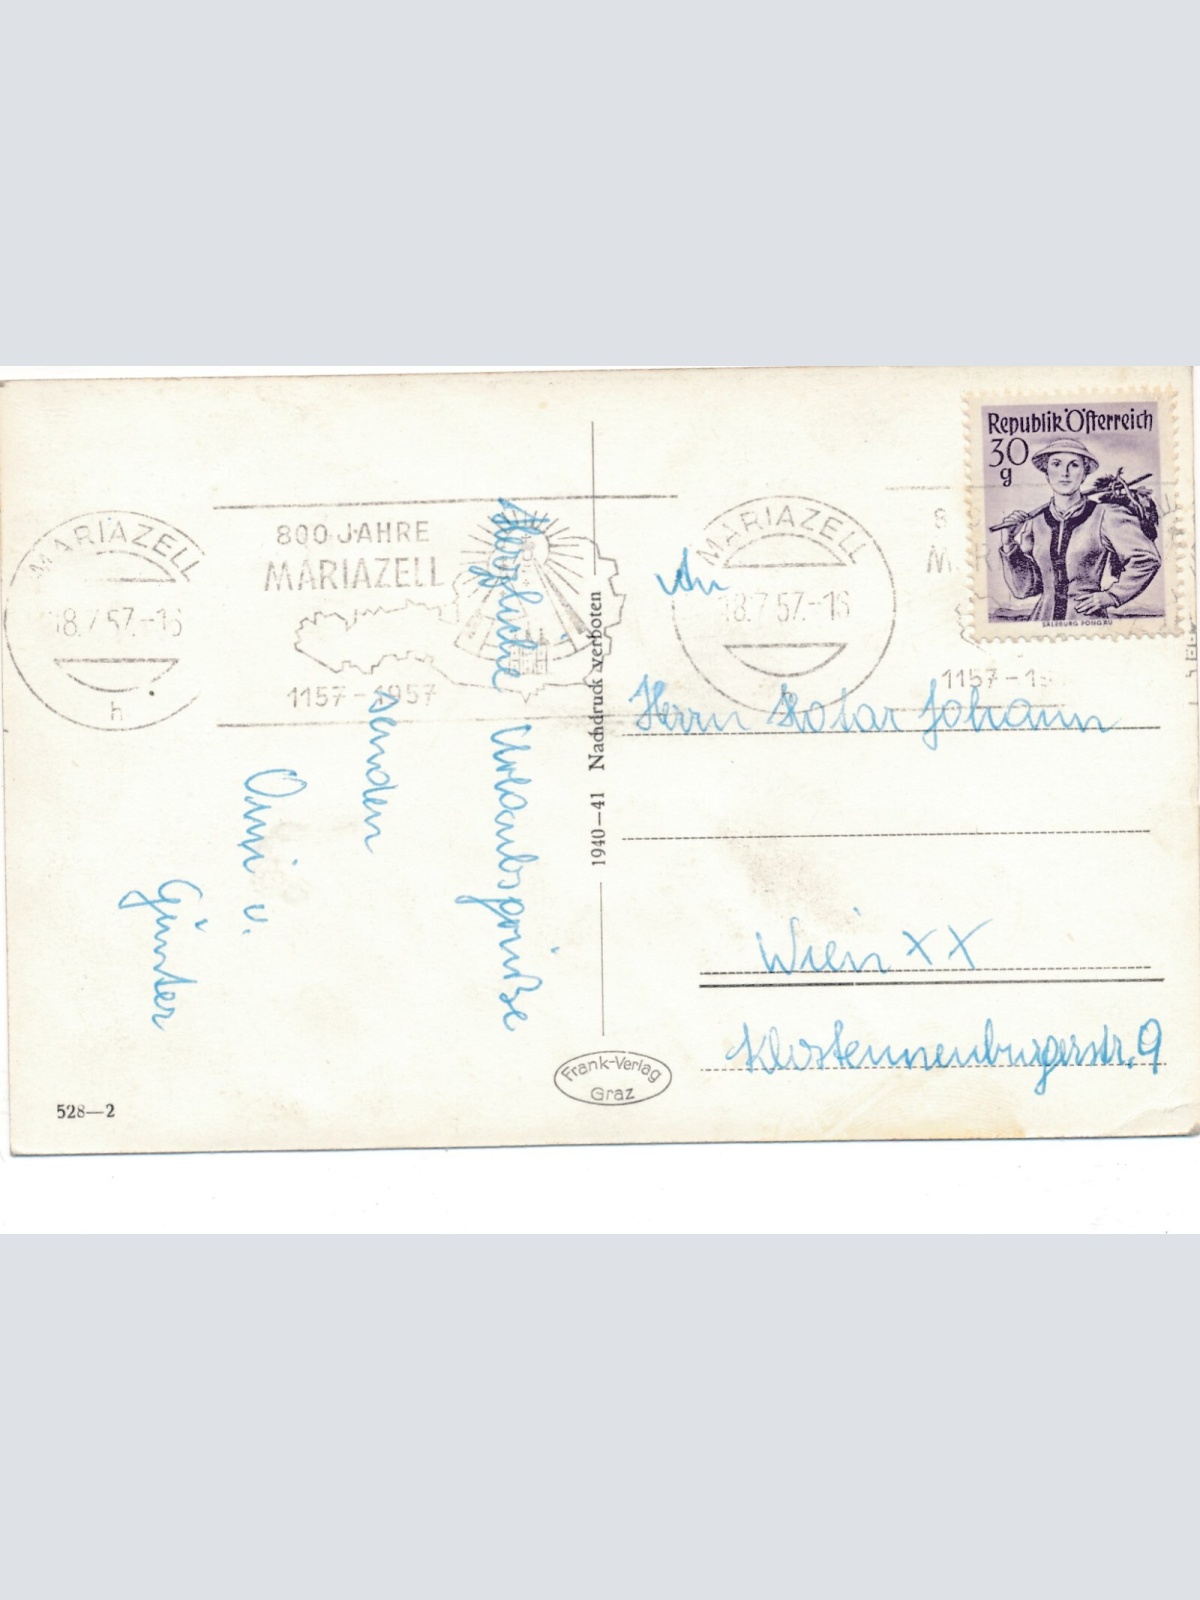 MARIAZELL
18.7.57.-16
h
800 JAHRE
MARIAZELL
1157-1957
Herzliche Urlaubsgrüße
senden
Omi u.
Günter
528—2
1940—41 Nachdruck verboten
Frank-Verlag
Graz
MARIAZELL
18.7.57.-16
1157-19
Republik Österreich
30
g
SALZBURG PONGAU
An
Herrn Kolar Johann
Wien XX
Klosterneuburgerstr. 9